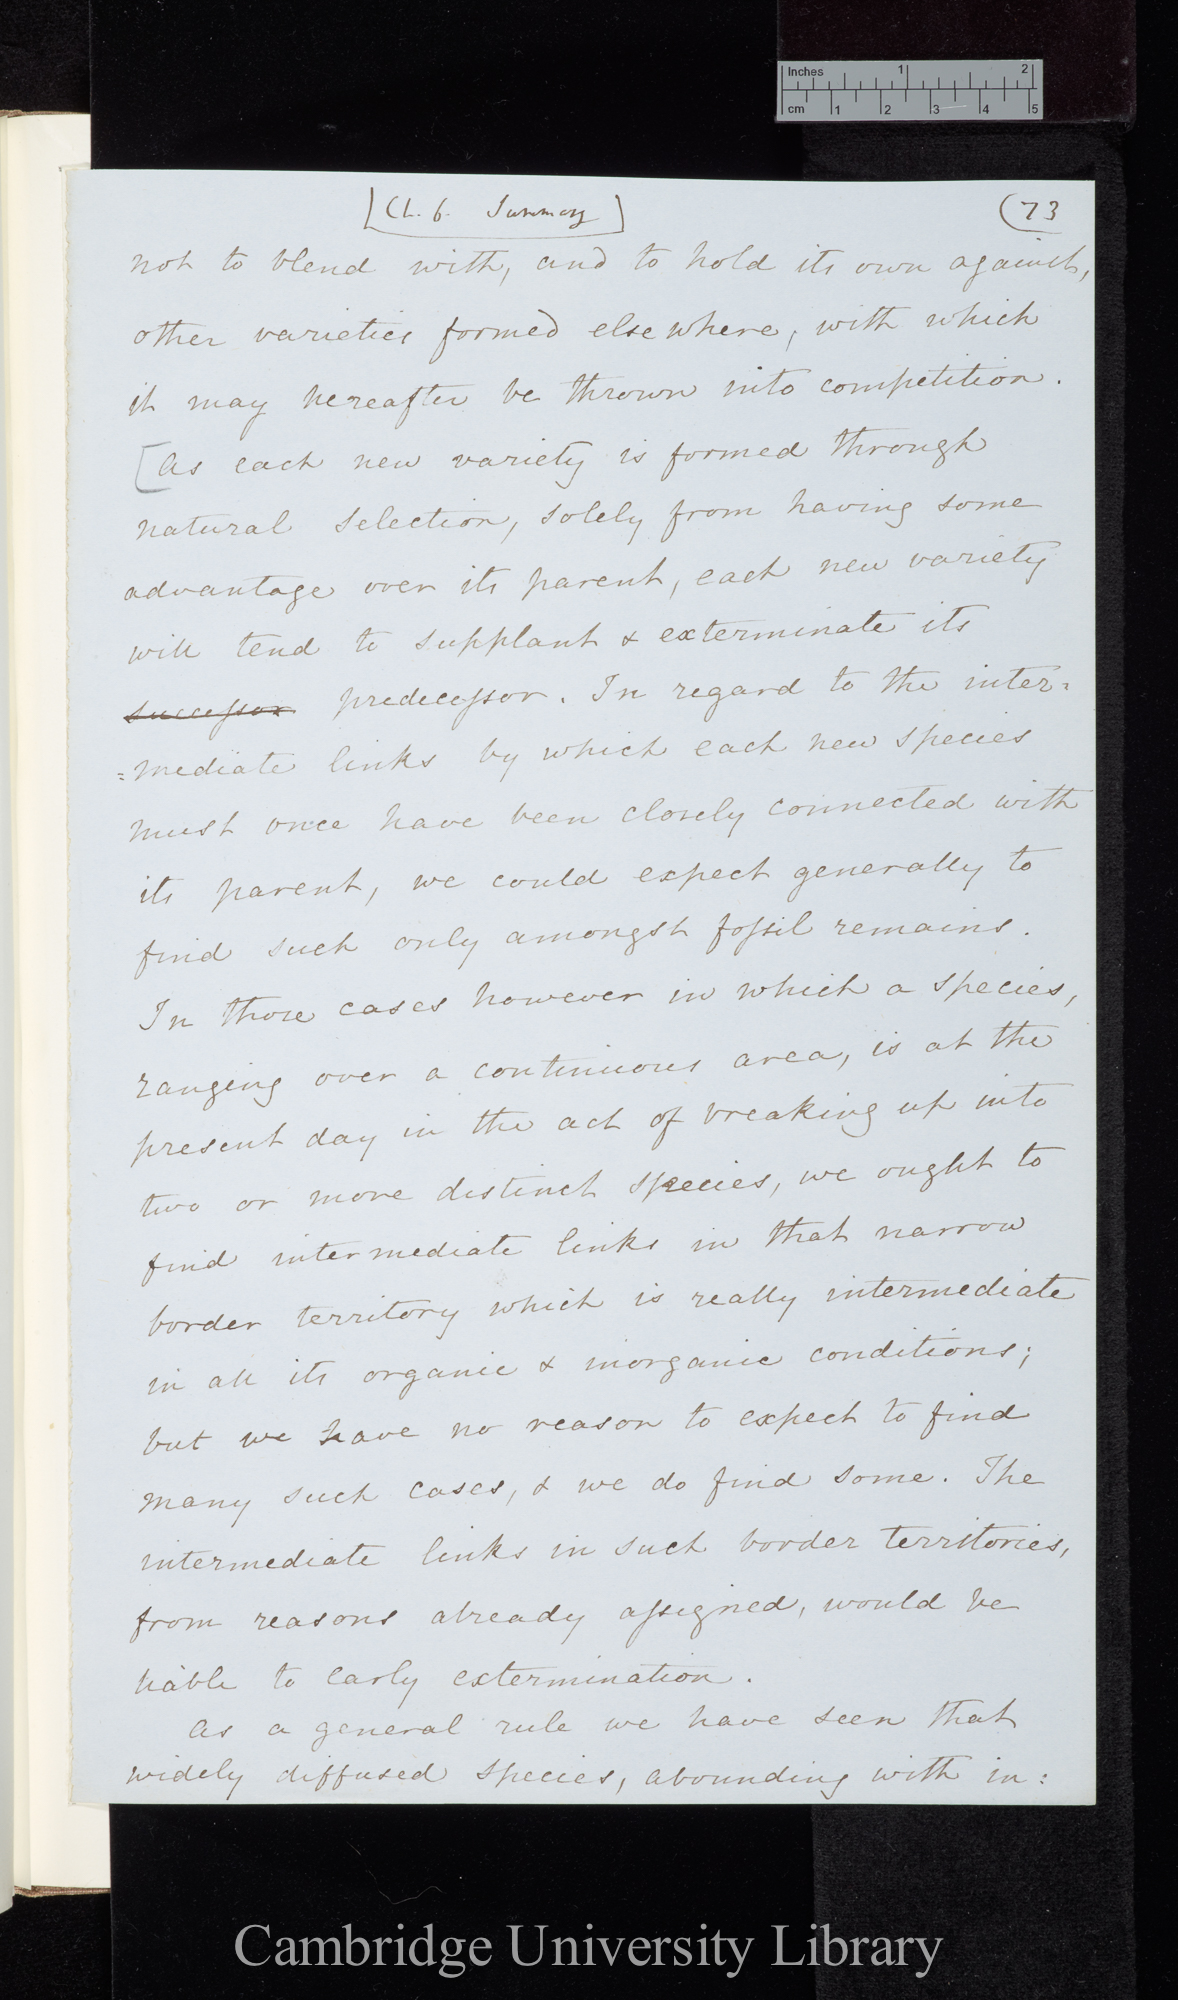 Inches 1 2
cm 1 2 3 4 5
[Ch. 6. Summary] (73
not to blend with, and to hold its own against,
other varieties formed elsewhere, with which
it may hereafter be thrown into competition.
[As each new variety is formed through
natural selection, solely from having some
advantage over its parent, each new variety
will tend to supplant & exterminate its
successor predecessor. In regard to the inter=
=mediate links by which each new species
must once have been closely connected with
its parent, we could expect generally to
find such only amongst fossil remains.
In those cases however in which a species,
ranging over a continuous area, is at the
present day in the act of breaking up into
two or more distinct species, we ought to
find intermediate links in that narrow
border territory which is really intermediate
in all its organic & inorganic conditions;
but we have no reason to expect to find
many such cases, & we do find some. The
intermediate links in such border territories,
from reasons already assigned, would be
liable to early extermination.
As a general rule we have seen that
widely diffused species, abounding with in:
Cambridge University Library